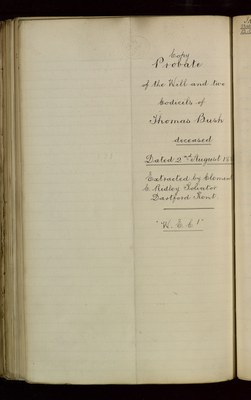 Copy
Probate
of the Will and two
Codicils of
Thomas Bush
deceased
Dated 2nd August 18
Extracted by
& Ridley
Dartford Kent
"W. E. C 1"